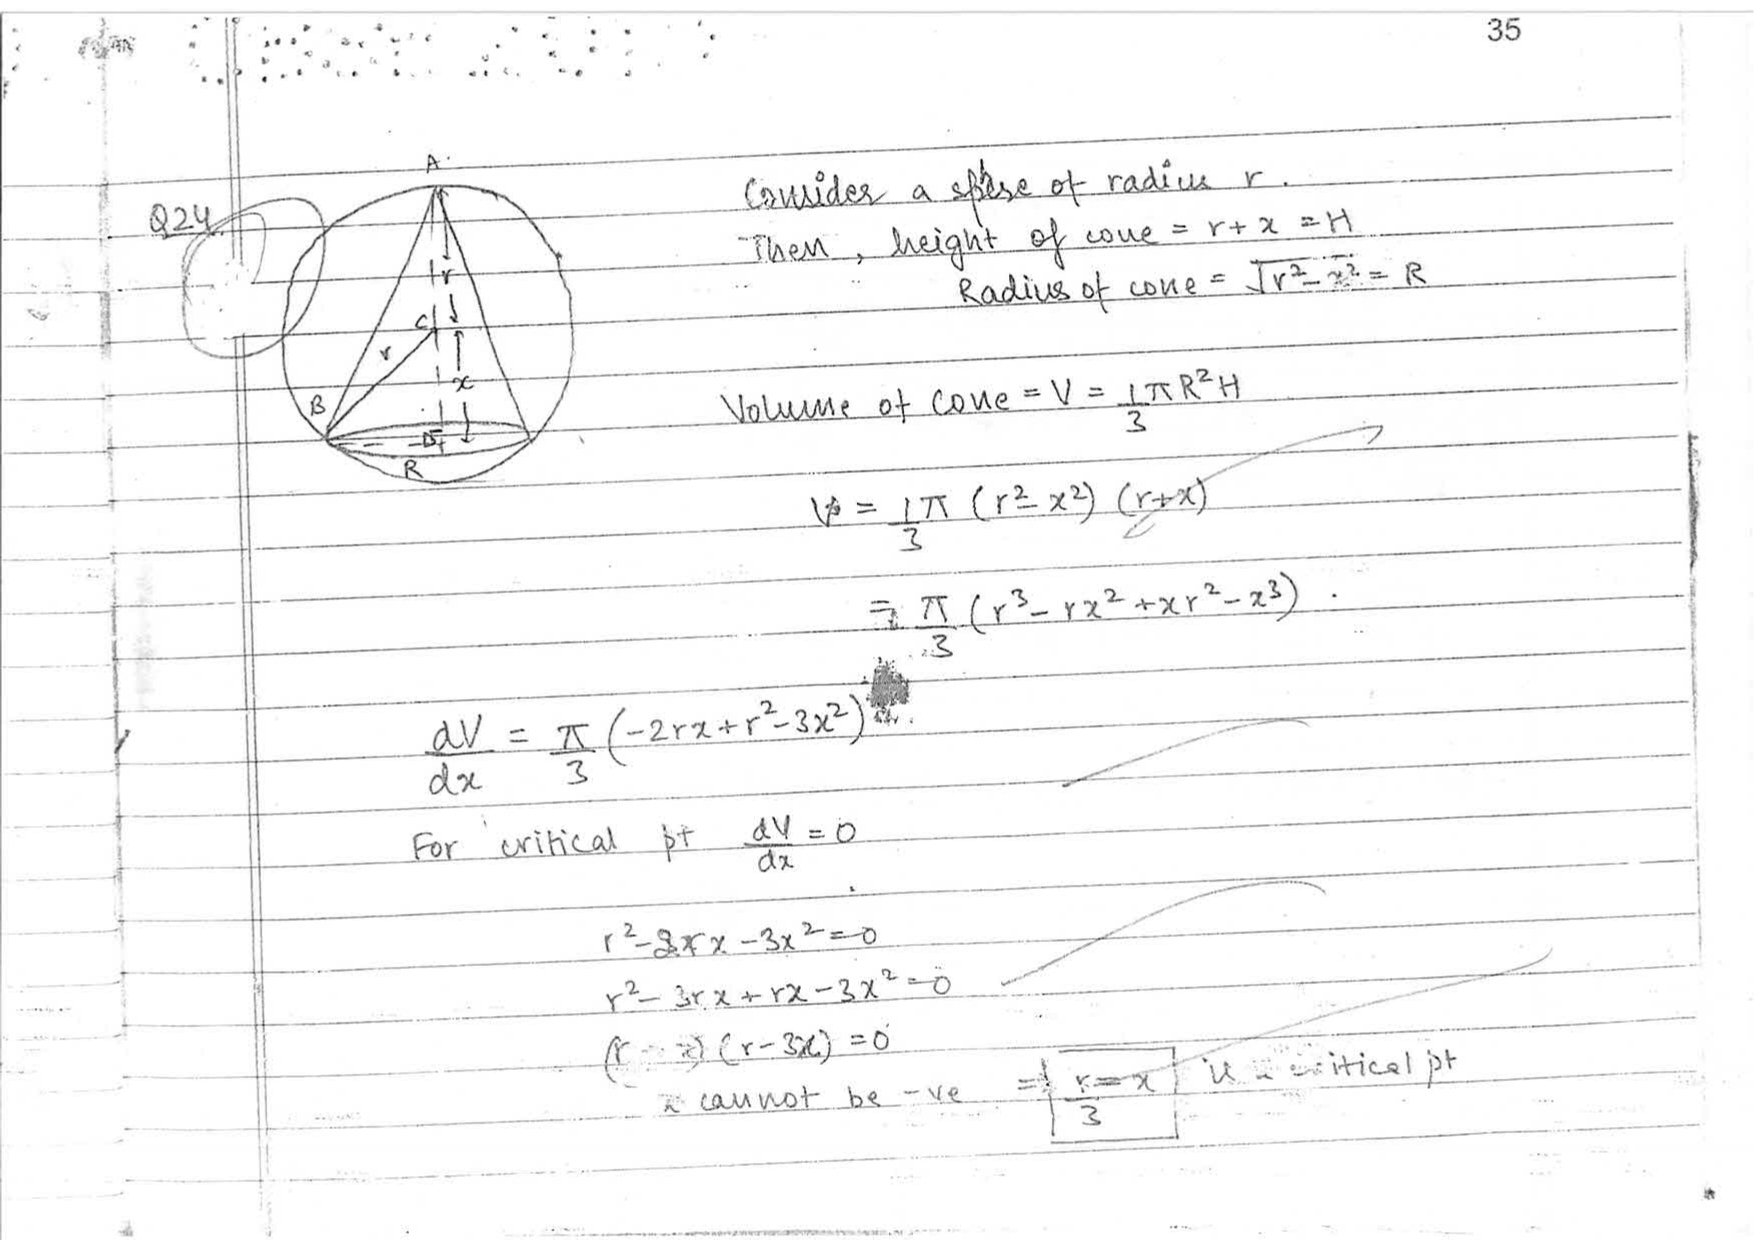 35
Q24.
A
r
C
r
x
B
D
R
Consider a sphere of radius r.
Then, height of cone = r + x = H
Radius of cone = √(r² - x²) = R
Volume of cone = V = 1/3 πR²H
V = 1/3 π (r² - x²) (r+x)
= π/3 (r³ - rx² + xr² - x³).
dV/dx = π/3 (-2rx + r² - 3x²)
For critical pt dV/dx = 0
r² - 2rx - 3x² = 0
r² - 3rx + rx - 3x² = 0
(r x) (r - 3x) = 0
x cannot be -ve ⇒ r/3 = x is a critical pt